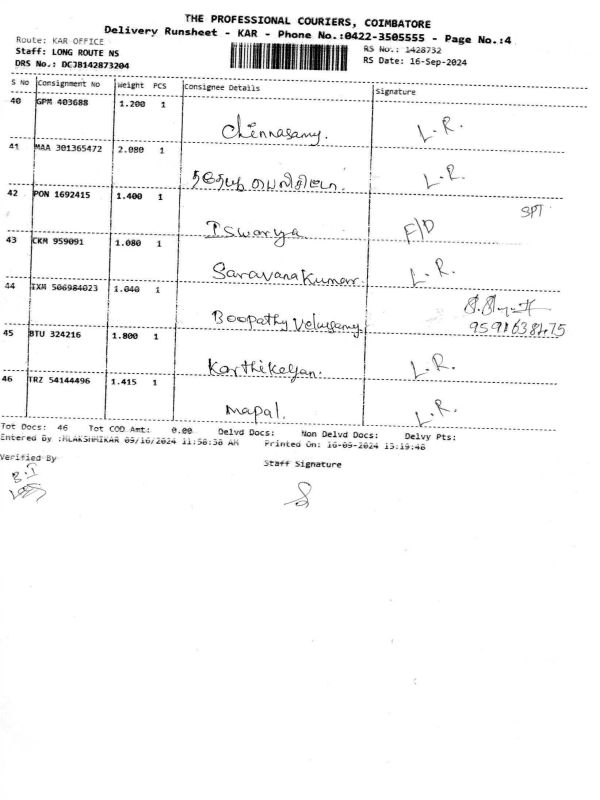 THE PROFESSIONAL COURIERS, COIMBATORE
Delivery Runsheet - KAR - Phone No.:0422-3505555 - Page No.:4
Route: KAR OFFICE RS No.: 1428732
Staff: LONG ROUTE NS RS Date: 16-Sep-2024
DRS No.: DCJB142873204
S No Consignment No Weight PCS Consignee Details Signature
40 GPM 403688 1.200 1
Chennasamy. L.R.
41 MAA 301365472 2.080 1
L.R.
42 PON 1692415 1.400 1 SPT
Iswarya F/D
43 CKM 959091 1.080 1
Saravana Kumar. L.R.
44 IXM 506984023 1.040 1
Boopathy Velusamy.
45 BTU 324216 1.800 1
Karthikeyan. L.R.
46 TRZ 54144496 1.415 1
mapal. L.R.
Tot Docs: 46 Tot COD Amt: 0.00 Delvd Docs: Non Delvd Docs: Delvy Pts:
Entered By :MLAKSHMIKAR 09/16/2024 11:58:38 AM Printed On: 16-09-2024 15:19:48
Verified By Staff Signature